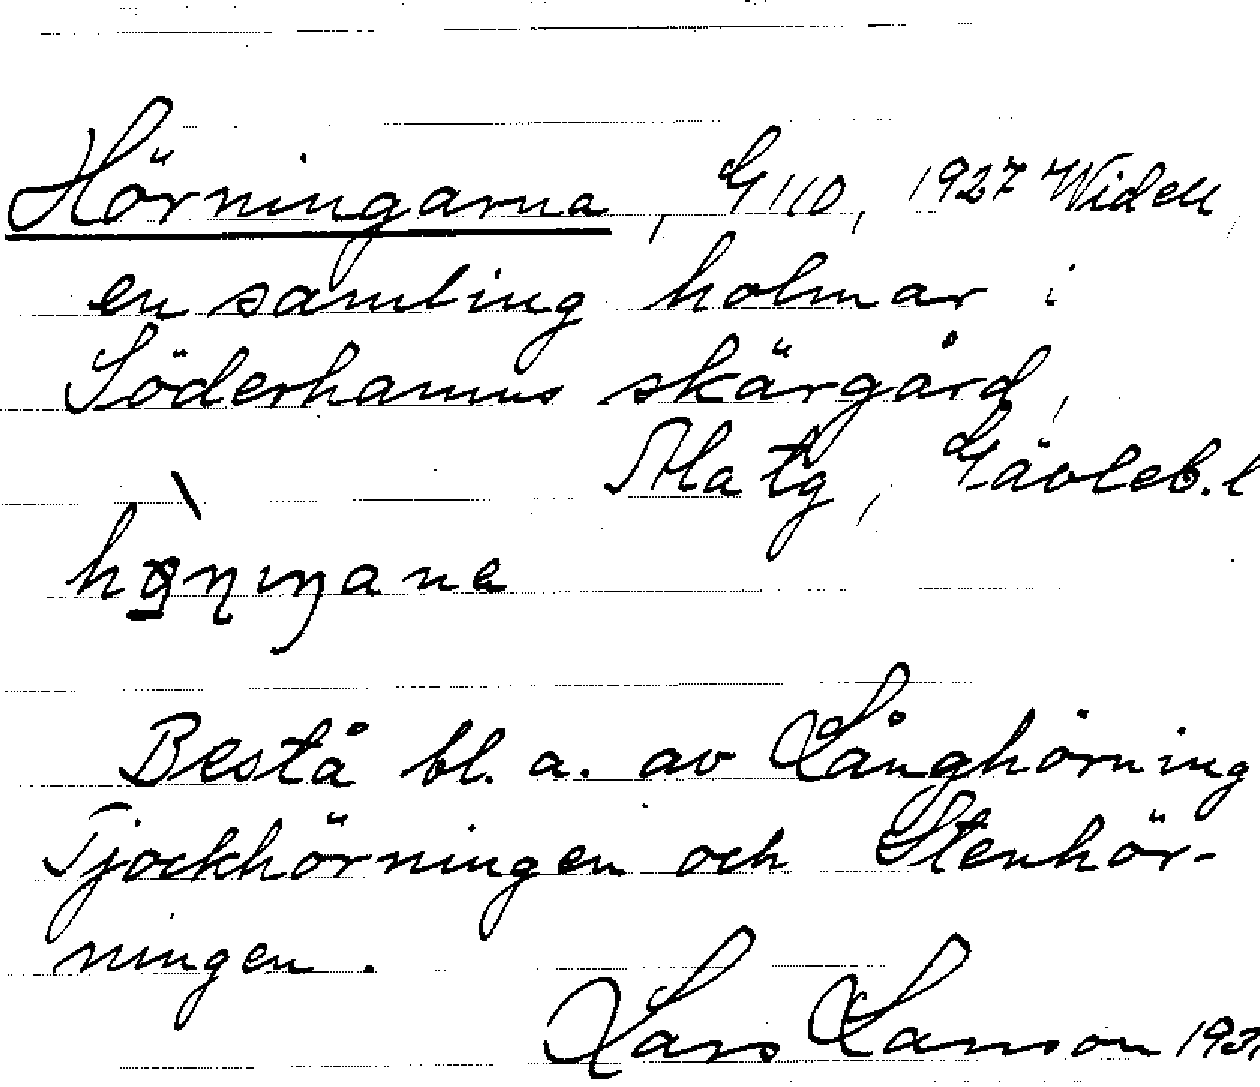 Hörningarna, G 110, 1927 Widell,
en samling holmar i
Söderhamns skärgård,
Atlatg, Gävleb. l
Bestå bl. a. av Långhörning
Tjockhörningen och Stenhör-
ningen.
Lars Larsson